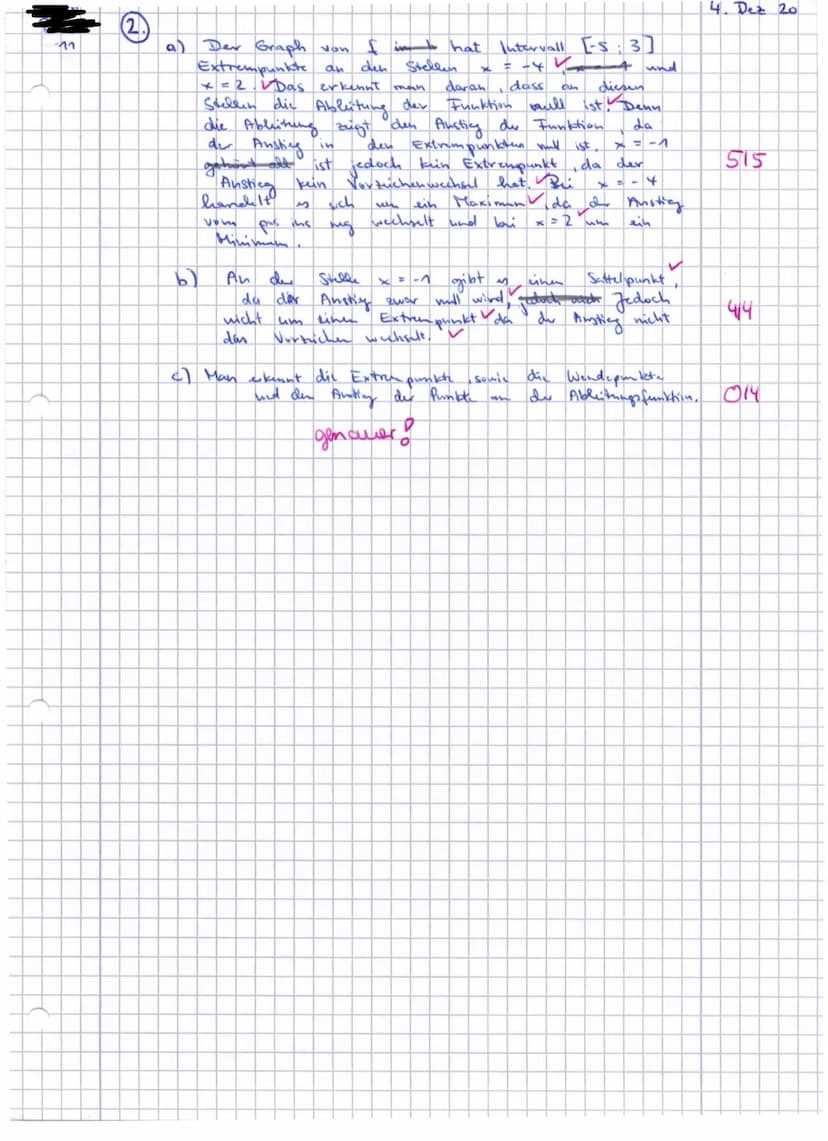 4. Dez 20
11
2.
a) Der Graph von f hat Intervall [-5 ; 3]
Extrempunkte an den Stellen x = -4 und
x = 2. Das erkennt man daran, dass an diesen
Stellen die Ableitung der Funktion null ist. Denn
die Ableitung zeigt den Anstieg der Funktion, da
der Anstieg in den Extrempunkten null ist. x = -1
ist jedoch kein Extrempunkt, da der 5/5
Anstieg kein Vorzeichenwechsel hat. Bei x = -4
handelt es sich um ein Maximum, da der Anstieg
vom pos ins neg wechselt und bei x = 2 um ein
Minimum.
b) An der Stelle x = -1 gibt es einen Sattelpunkt,
da der Anstieg zwar null wird, jedoch auch Jedoch
nicht um einen Extrempunkt da der Anstieg nicht 4/4
das Vorzeichen wechselt.
c) Man erkennt die Extrempunkte, sowie die Wendepunkte
und den Anstieg der Punkte an der Ableitungsfunktion. 0/4
genauer!